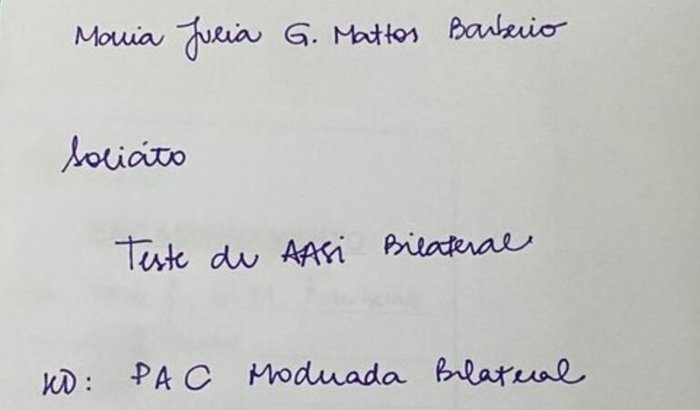 Maria Julia G. Mattos Barberio
Solicito
Teste de AASi Bilateral
HD: PAC Moderada Bilateral